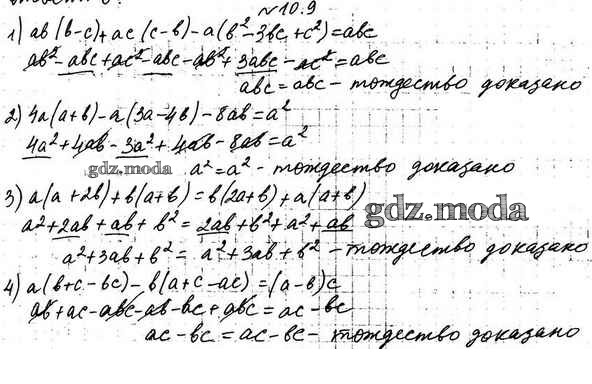 №10.9
1) ab(b-c)+ac(c-b)-a(b²-3bc+c²)=abc
ab²-abc+ac²-abc-ab²+3abc-ac²=abc
abc=abc - тождество доказано
2) 4a(a+b)-a(3a-4b)-8ab=a²
4a²+4ab-3a²+4ab-8ab=a²
gdz.moda a²=a² - тождество доказано
3) a(a+2b)+b(a+b)=b(2a+b)+a(a+b)
a²+2ab+ab+b²=2ab+b²+a²+ab gdz.moda
a²+3ab+b²=a²+3ab+b² - тождество доказано
4) a(b+c-bc)-b(a+c-ac)=(a-b)c
ab+ac-abc-ab-bc+abc=ac-bc
ac-bc=ac-bc - тождество доказано